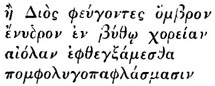 ἢ Διὸς φεύγοντες ὄμβρον
ἔνυδρον ἐν βύθῳ χορείαν
αἰόλαν ἐφθεγξάμεσθα
πομφολυγοπαφλάσμασιν